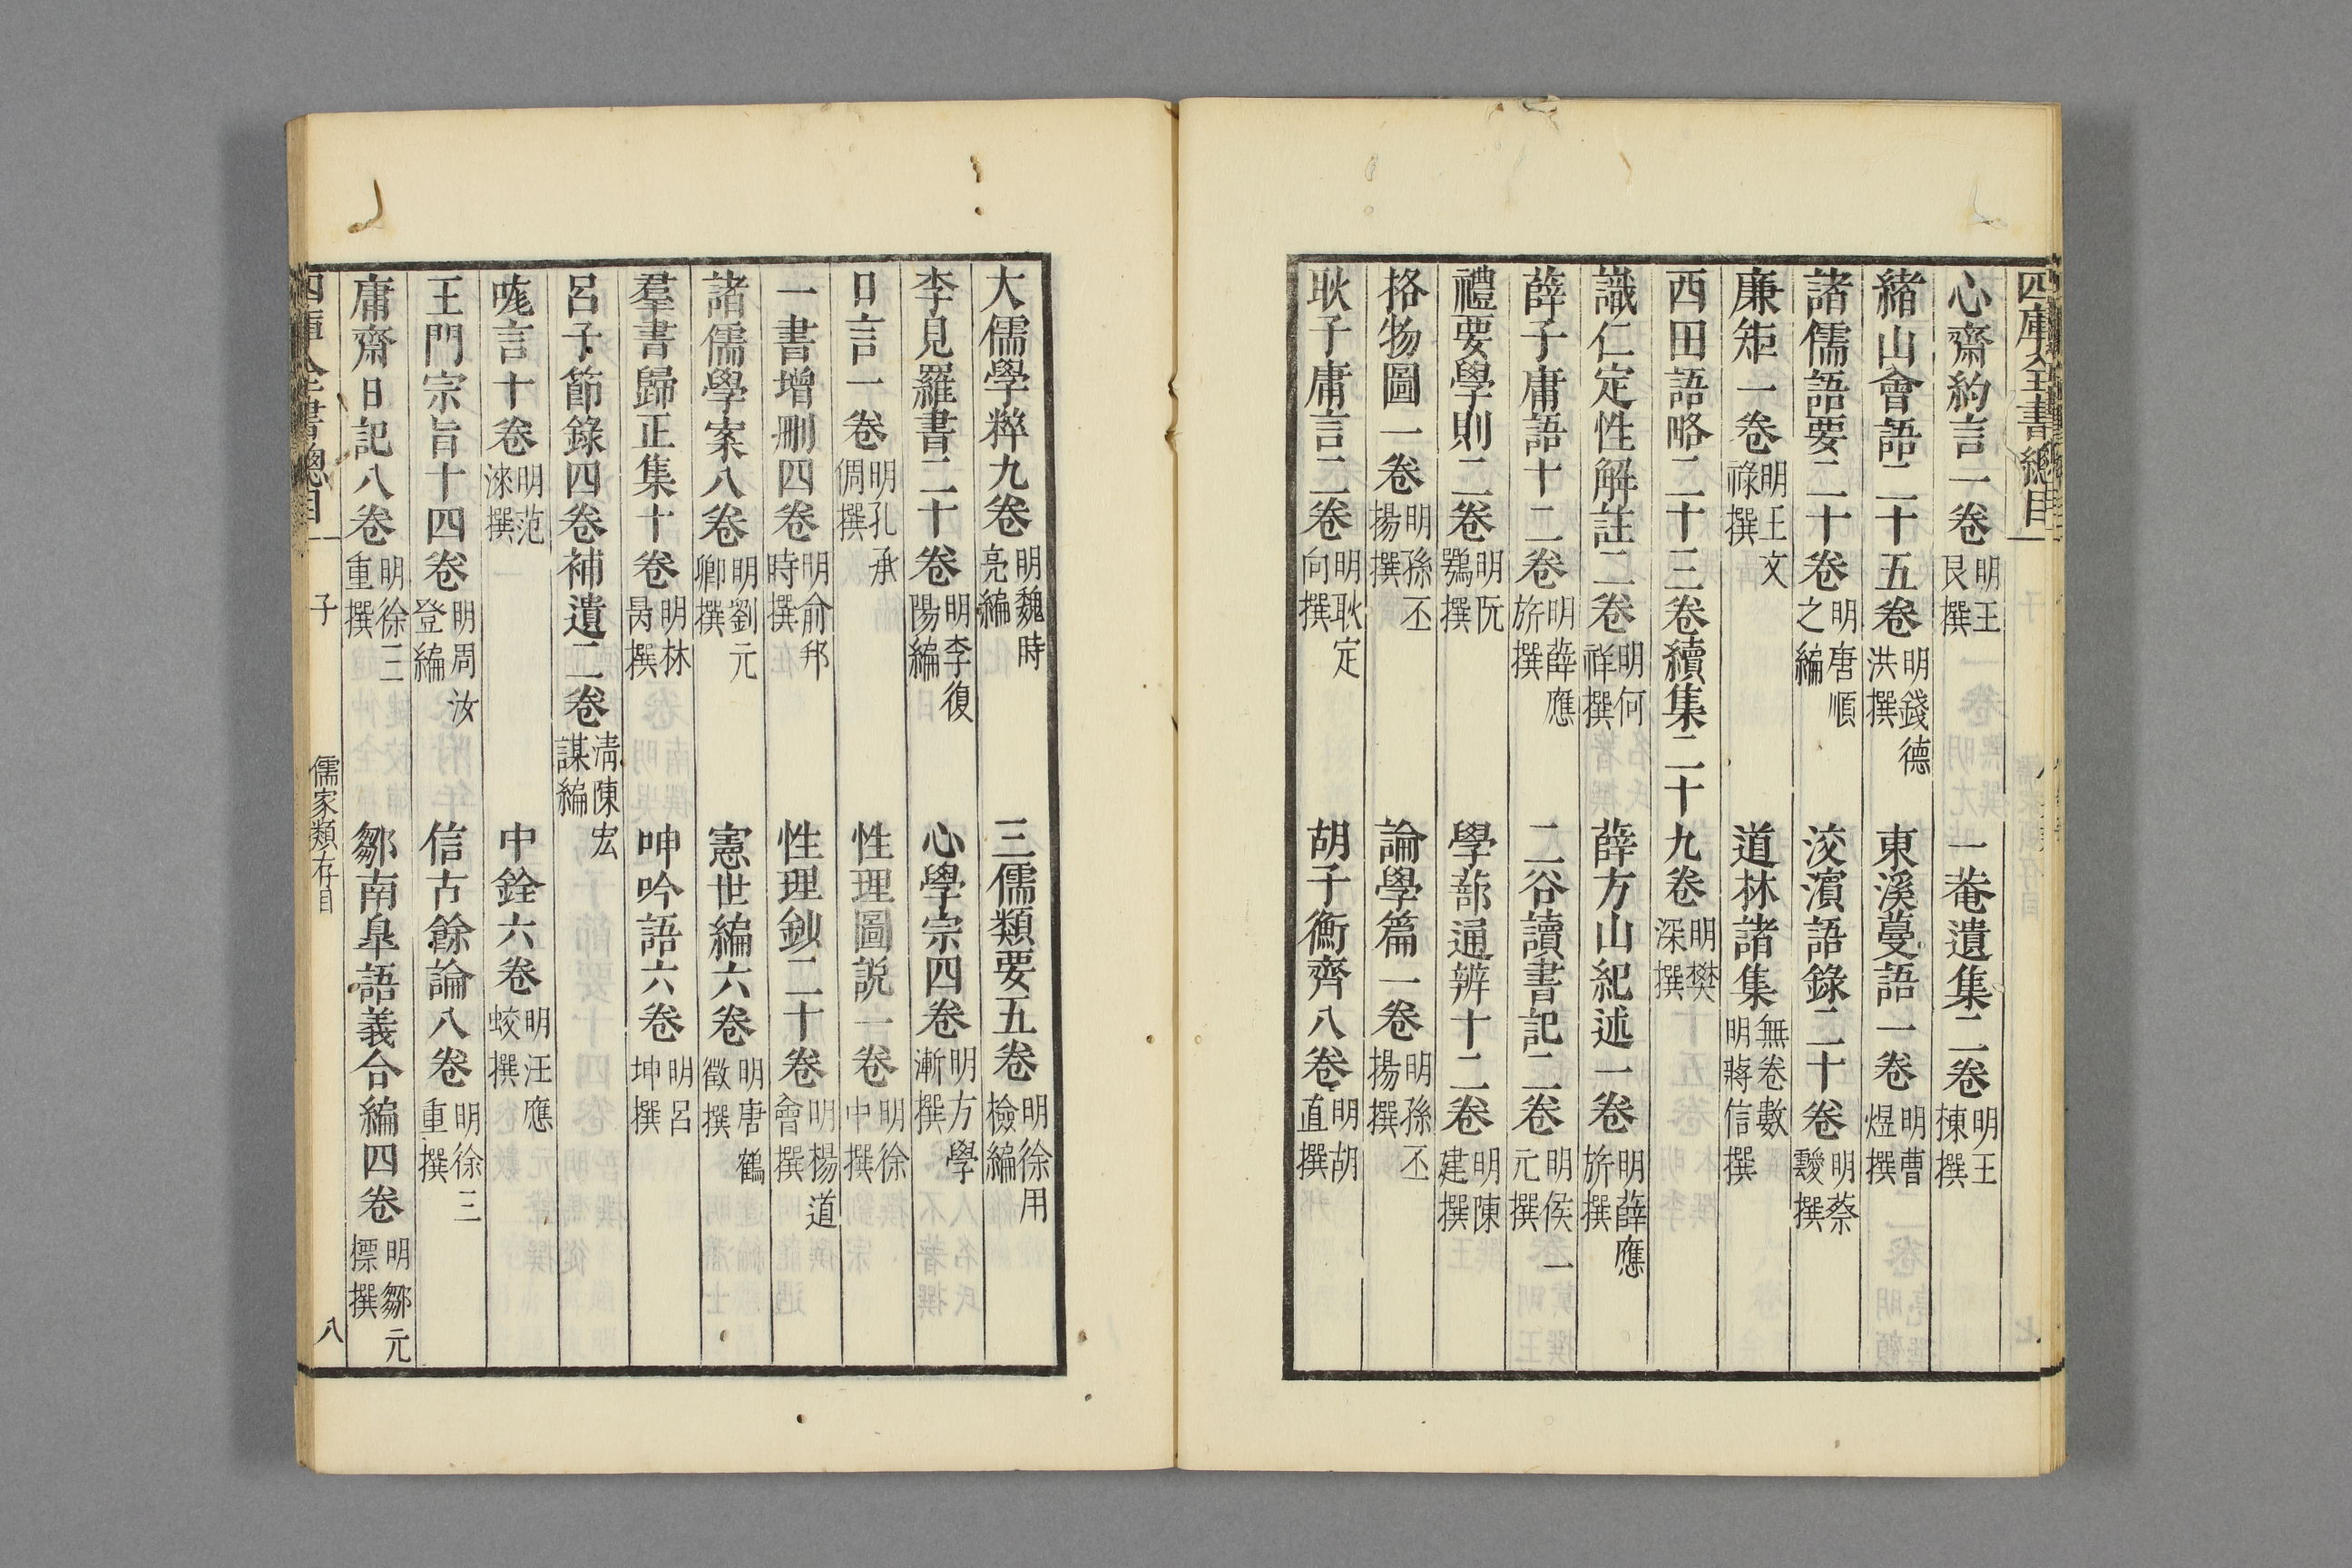 四庫全書總目
心齋約言一卷 明王艮撰 一菴遺集二卷 明王棟撰
緒山會語二十五卷 明錢德洪撰 東溪蔓語一卷 明曹煜撰
諸儒語要二十卷 明唐順之編 洨濱語錄二十卷 明蔡靉撰
廉矩一卷 明王文祿撰 道林諸集 無卷數明蔣信撰
西田語略二十三卷續集二十九卷 明樊深撰
識仁定性解註二卷 明何祥撰 薛方山紀述一卷 明薛應旂撰
薛子庸語十二卷 明薛應旂撰 二谷讀書記二卷 明侯一元撰
禮要學則二卷 明阮鶚撰 學蔀通辨十二卷 明陳建撰
格物圖一卷 明孫丕揚撰 論學篇一卷 明孫丕揚撰
耿子庸言二卷 明耿定向撰 胡子衡齊八卷 明胡直撰
大儒學粹九卷 明魏時亮編 三儒類要五卷 明徐用檢編
李見羅書二十卷 明李復陽編 心學宗四卷 明方學漸撰
日言一卷 明孔承倜撰 性理圖説一卷 明徐中撰
一書增刪四卷 明俞邦時撰 性理鈔二十卷 明楊道會撰
諸儒學案八卷 明劉元卿撰 憲世編六卷 明唐鶴徵撰
羣書歸正集十卷 明林昺撰 呻吟語六卷 明呂坤撰
呂子節錄四卷補遺二卷 清陳宏謀編
哤言十卷 明范淶撰 中銓六卷 明汪應蛟撰
王門宗旨十四卷 明周汝登編 信古餘論八卷 明徐三重撰
庸齋日記八卷 明徐三重撰 鄒南皐語義合編四卷 明鄒元標撰
四庫全書總目 子 儒家類存目 八